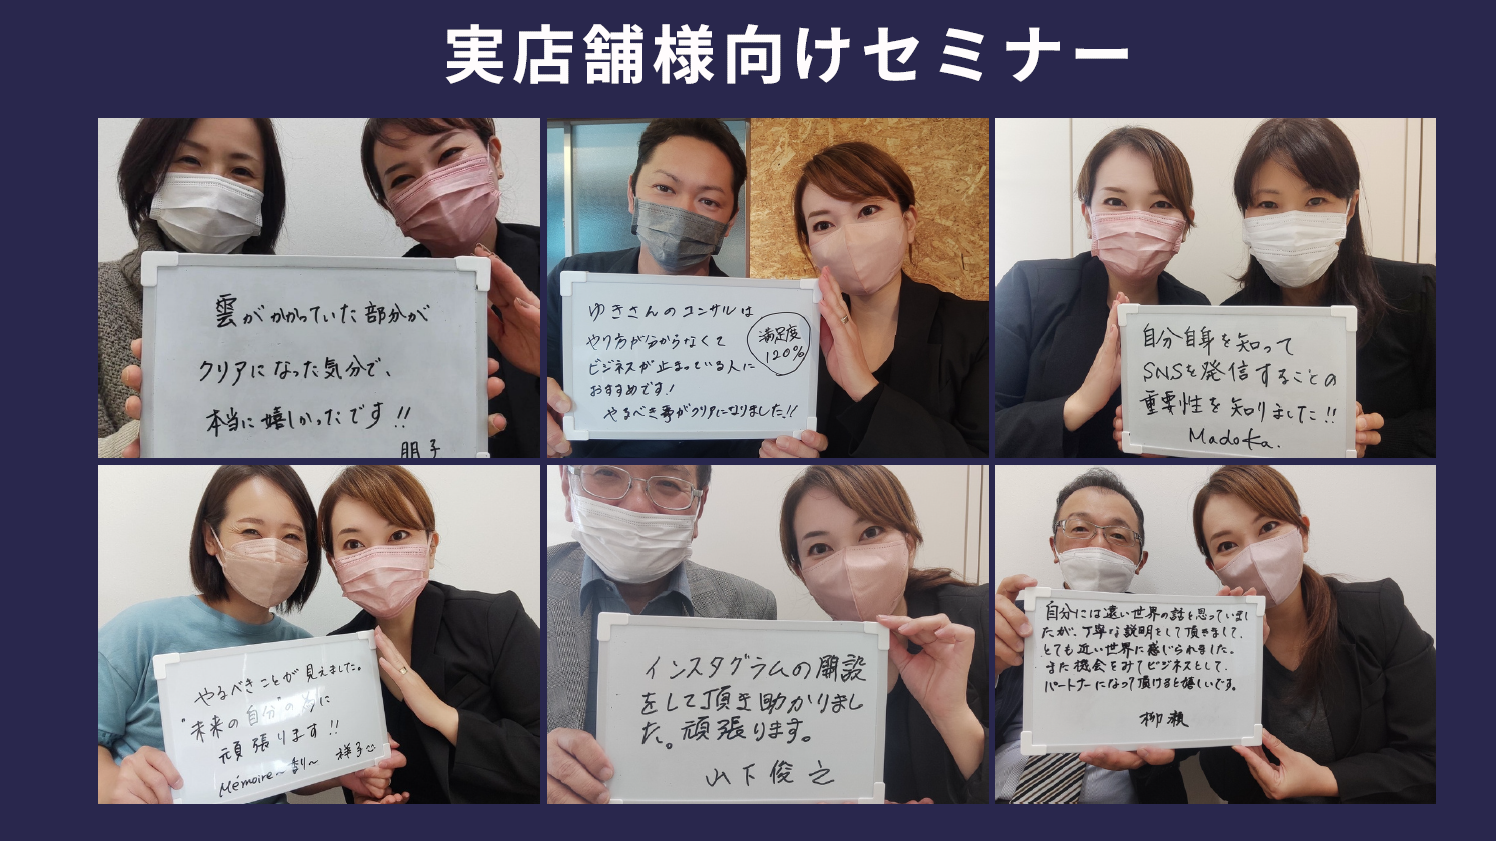 実店舗様向けセミナー
雲がかかっていた部分が
クリアになった気分で、
本当に嬉しかったです!!
朋子
ゆきさんのコンサルは
やり方が分からなくて
ビジネスが止まっている人に
おすすめです!
やるべき事がクリアになりました!!
満足度
120%
自分自身を知って
SNSを発信することの
重要性を知りました!!
Madoka.
やるべきことが見えました。
"未来の自分"の為に
頑張ります!!
Mémoire~香り~ 祥子
インスタグラムの開設
をして頂き助かりまし
た。頑張ります。
山下俊之
自分には遠い世界の話と思っていまし
たが、丁寧な説明をして頂きまして、
とても近い世界に感じられました。
また機会をみてビジネスとして、
パートナーになって頂けると嬉しいです。
柳瀬